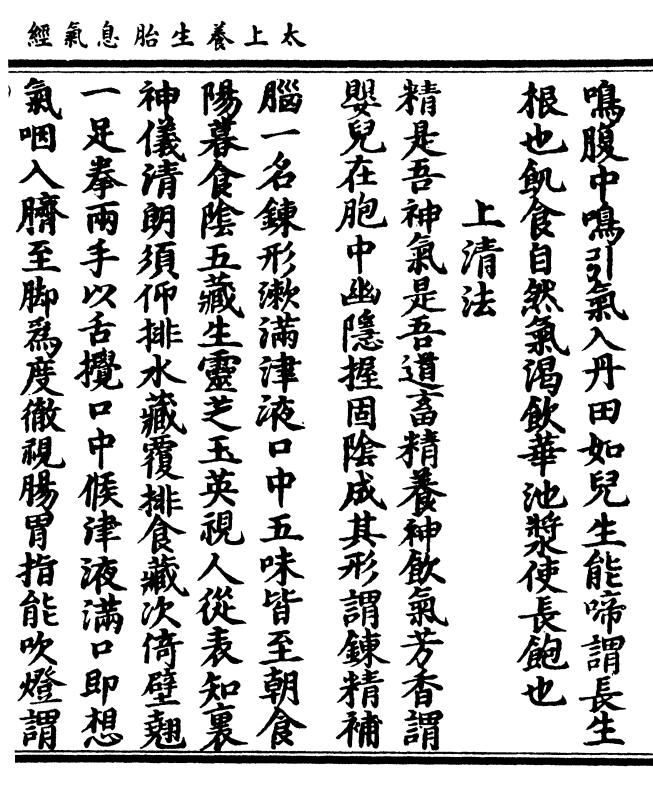 太上養生胎息氣經
鳴腹中鳴引氣入丹田如兒生能啼謂長生
根也飢食自然氣渴飲華池漿使長飽也
上清法
精是吾神氣是吾道畜精養神飲氣芳香謂
嬰兒在胞中幽隱握固陰成其形謂鍊精補
腦一名鍊形漱滿津液口中五味皆至朝食
陽暮食陰五藏生靈芝玉英視人從表知裏
神儀清朗須仰排水藏覆排食藏次倚壁翹
一足拳兩手以舌攪口中候津液滿口即想
氣咽入臍至脚為度徹視腸胃指能吹燈謂